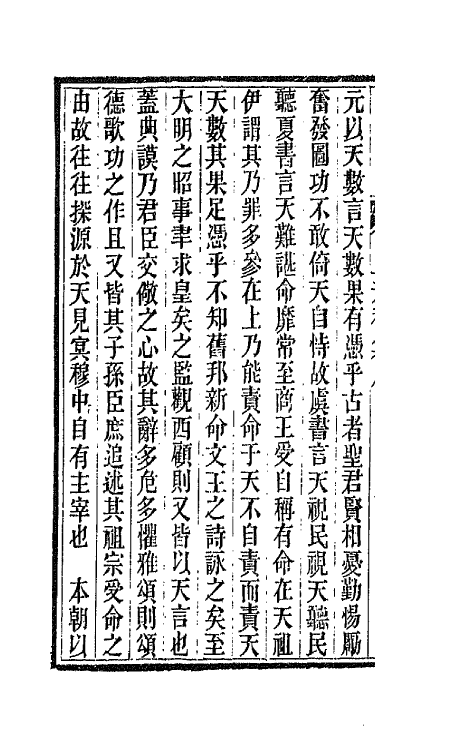 元以天數言天數果有憑乎古者聖君賢相憂勤惕厲
奮發圖功不敢倚天自恃故虞書言天視民視天聽民
聽夏書言天難諶命靡常至商王受自稱有命在天祖
伊謂其乃罪多參在上乃能責命于天不自責而責天
天數其果足憑乎不知舊邦新命文王之詩詠之矣至
大明之昭事聿求皇矣之監觀西顧則又皆以天言也
蓋典謨乃君臣交儆之心故其辭多危多懼雅頌則頌
德歌功之作且又皆其子孫臣庶追述其祖宗受命之
由故往往探源於天見冥穆中自有主宰也　本朝以